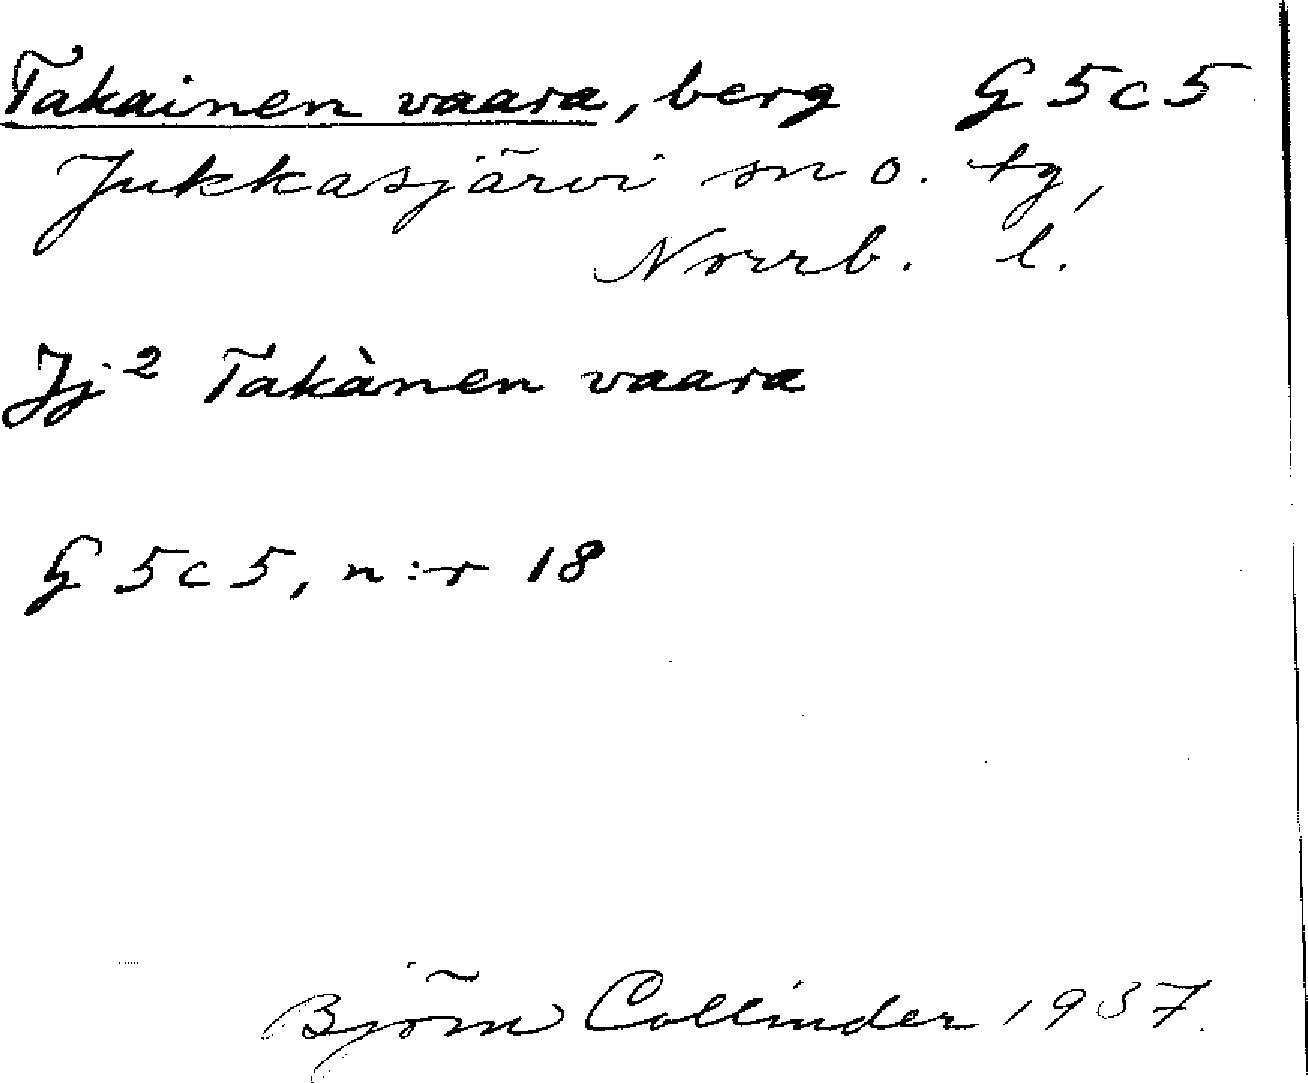 Takainen vaara, berg G 5 c 5
Jukkasjärvi sn o. tg,
Norrb. l.
Jj² Takànen vaara
G 5 c 5, n:r 18
Björn Collinder 1937.